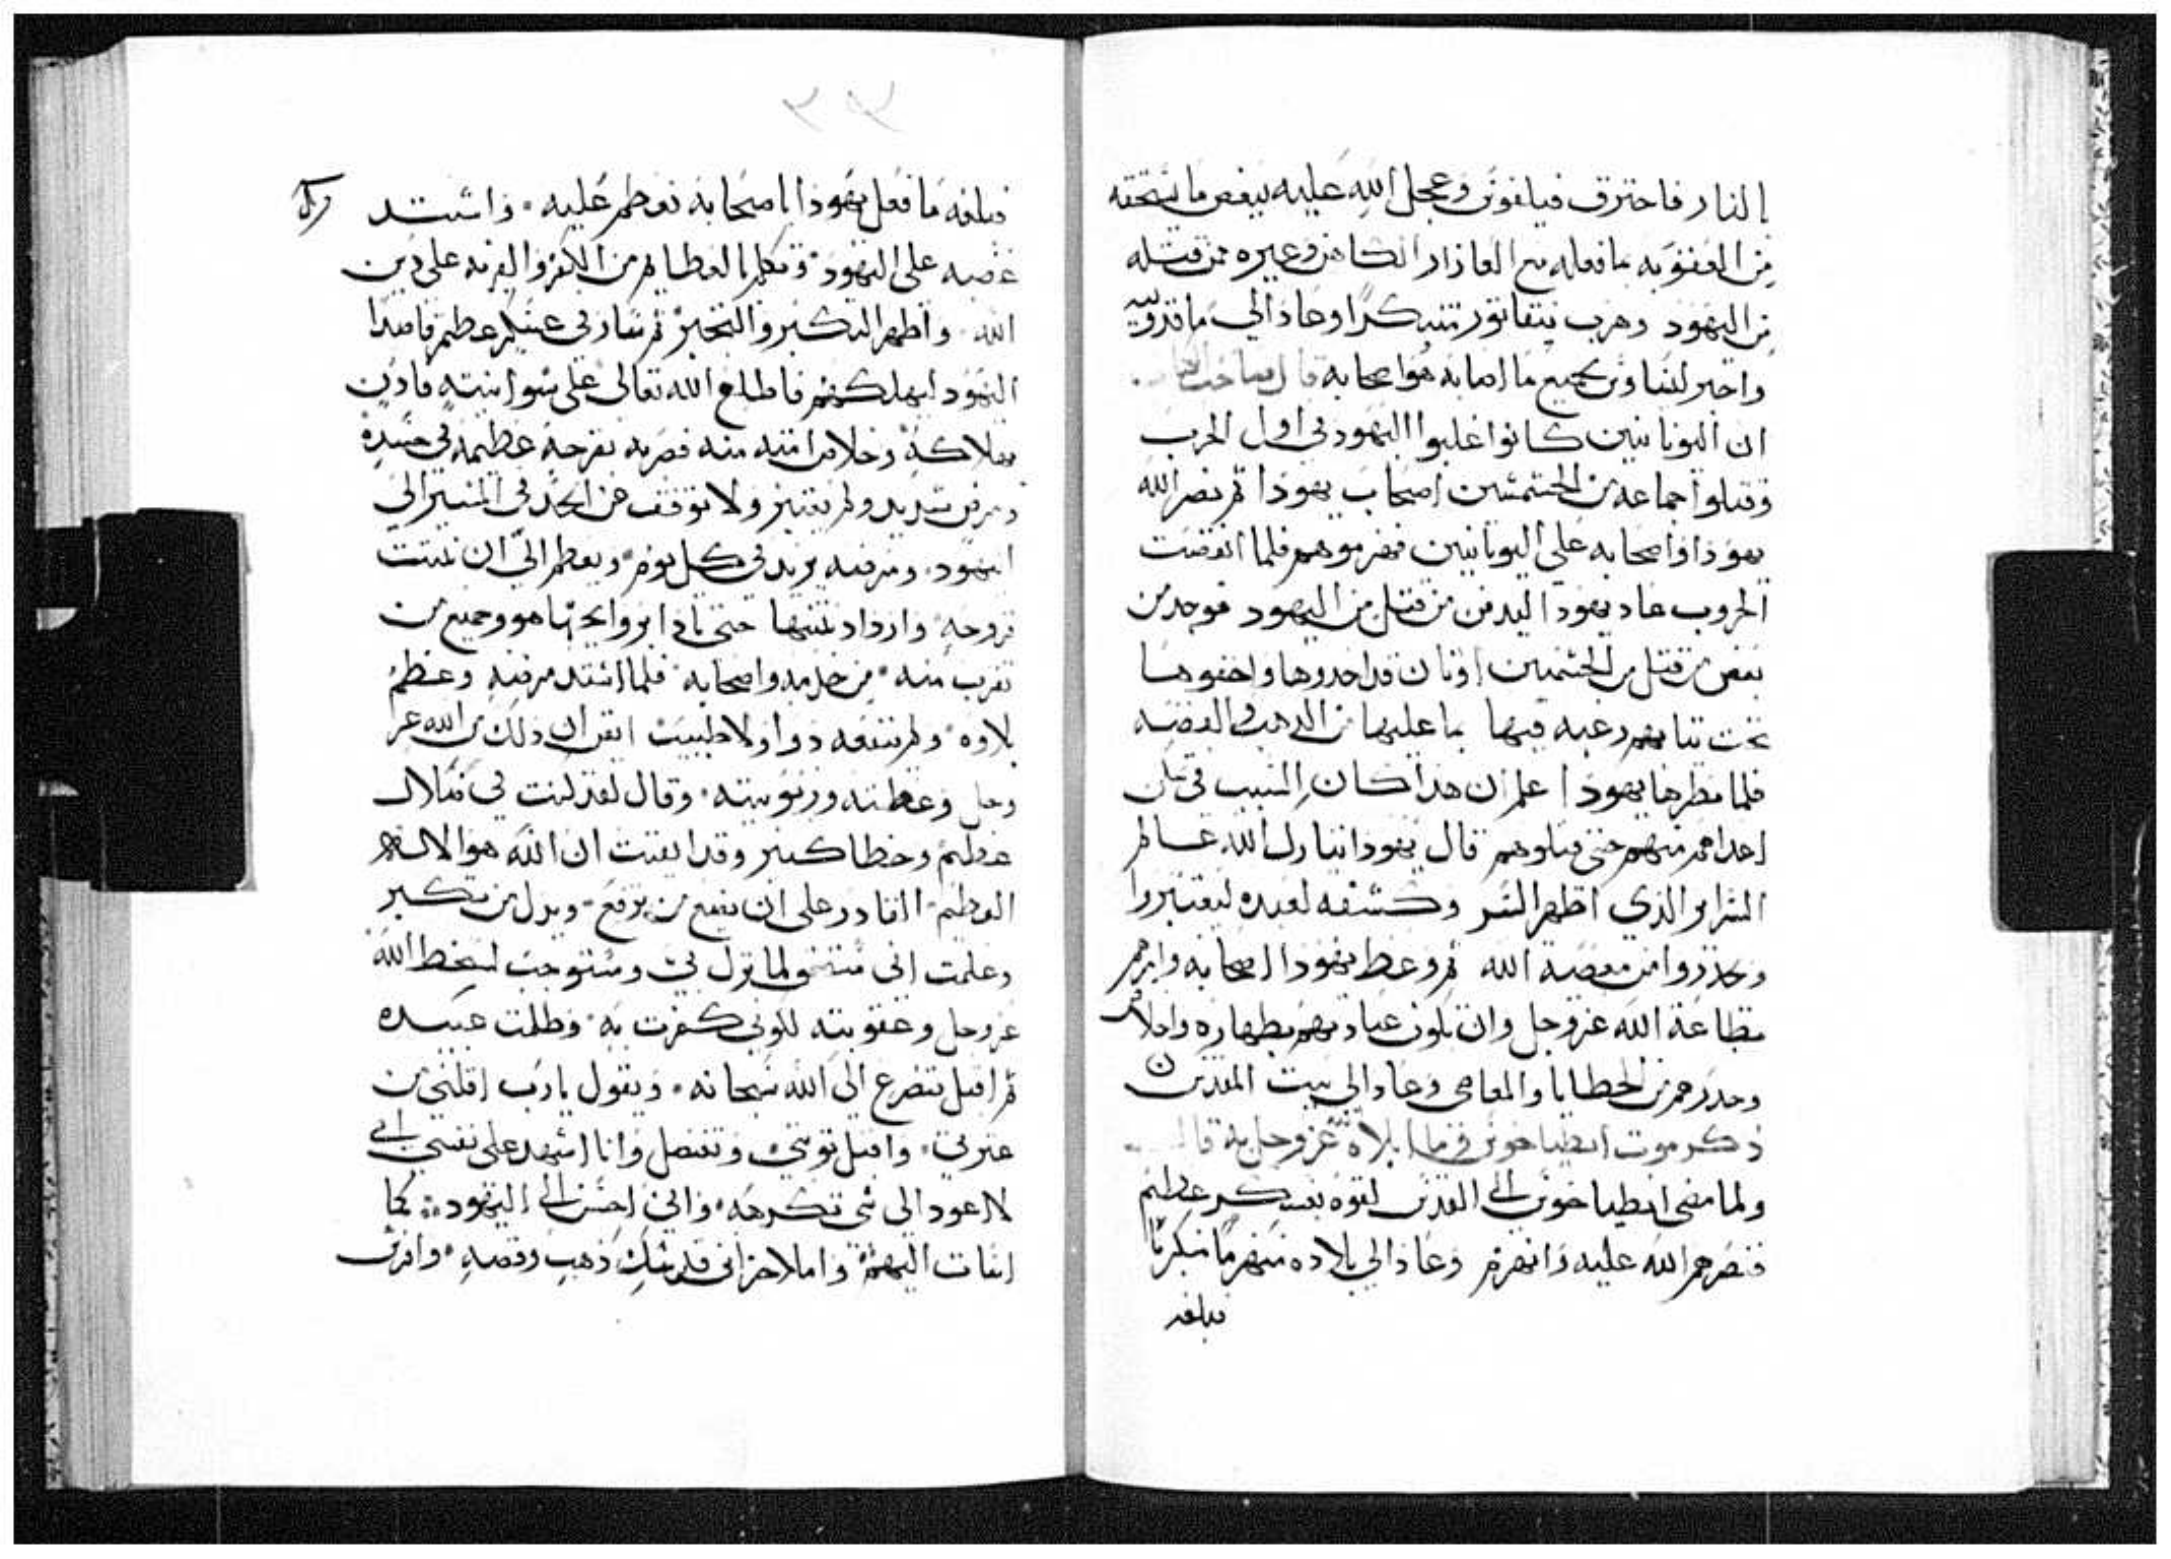 بالنار فاحترق فيلفوس وعجل الله عليه ببعض ما يستحقه
من العقوبه بما فعله مع العازار الكاهن وغيره ممن قتله
من اليهود وهرب نيقانور متنكرا وعاد الي مقدونيه
واخبر لسياوس بجميع ما اصابه هو واصحابه قال صاحب
ان اليونانيين كانوا غلبوا اليهود في اول الحرب
وقتلوا جماعه من اصحاب يهوذا ثم نصر الله
يهوذا واصحابه علي اليونانيين فهزموهم فلما انقضت
الحروب عاد يهوذا ليدفن من قتل من اليهود فوجد مع
بعض من قتل من اوثان قد اخذوها واخفوها
تحت ثيابهم رغبه فيها بما عليها من الذهب والفضه
فلما نظرها يهوذا علم ان هذا كان السبب في
اعداهم منهم حتي قتلوهم قال يهوذا تبارك الله عالم
السراير الذي اظهر السر وكشفه لعبيده ليعتبروا
ويحذروا من معصية الله ثم وعظ يهوذا اصحابه وامرهم
بطاعة الله عز وجل وان تكون عبادتهم بطهاره واخلاص
وحذرهم من الخطايا والمعاصي وعاد الي بيت المقدس
ذكر موت انطياخوس وما ابلاه الله عز وجل به قال
ولما مضي انطياخوس الى القدس لقوه بعسكر عظيم
فنصرهم الله عليه وانهزم وعاد الي بلاده منهزما منكسرا
فبلغه
٣٣
فبلغه ما فعل يهوذا باصحابه فعظم عليه واشتد
غضبه على اليهود وتكلم بالعظايم من الكفر والفريه على دين
الله واظهر التكبر والتجبر ثم سار في عسكر عظيم قاصدا
اليهود ليهلكهم فاطلع الله تعالى على سوا نيته فاذن
بهلاكه وخلاص امته منه فضربه بقرحه عظيمه في جسده
ومرض شديد ولم يعتبر ولا توقف عن الجد في المسير الى
اليهود ومرضه يزيد في كل يوم ويعظم الى ان نتنت
قروحه وازداد نتنها حتى تاذا بروايحها هو وجميع من
تقرب منه من خدمه واصحابه فلما اشتد مرضه وعظم
بلاوه ولم تنفعه دوا ولا طبيب ايقن ان ذلك من الله عز
وجل وعظمته وربوبيته وقال لقد كنت في ضلال
عظيم وخطا كبير وقد ايقنت ان الله هو الاله
العظيم القادر على ان يضع من يرفع ويذل من تكبر
وعلمت اني مستحق لما نزل بي ومستوجب لسخط الله
عز وجل وعقوبته لكوني كفرت به وظلمت عبيده
ثم اقبل يتضرع الى الله سبحانه ويقول يا رب اقلني من
عثرتي واقبل توبتي وتفضل وانا اشهد على نفسي اني
لا اعود الى شي تكرهه واني احسن الى اليهود كما
اسات اليهم واملا خزاين قدسك ذهب وفضه وافرش